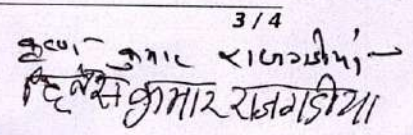 3/4
कृष्ण कुमार राजगडीया
दिनेस कुमार राजगडीया